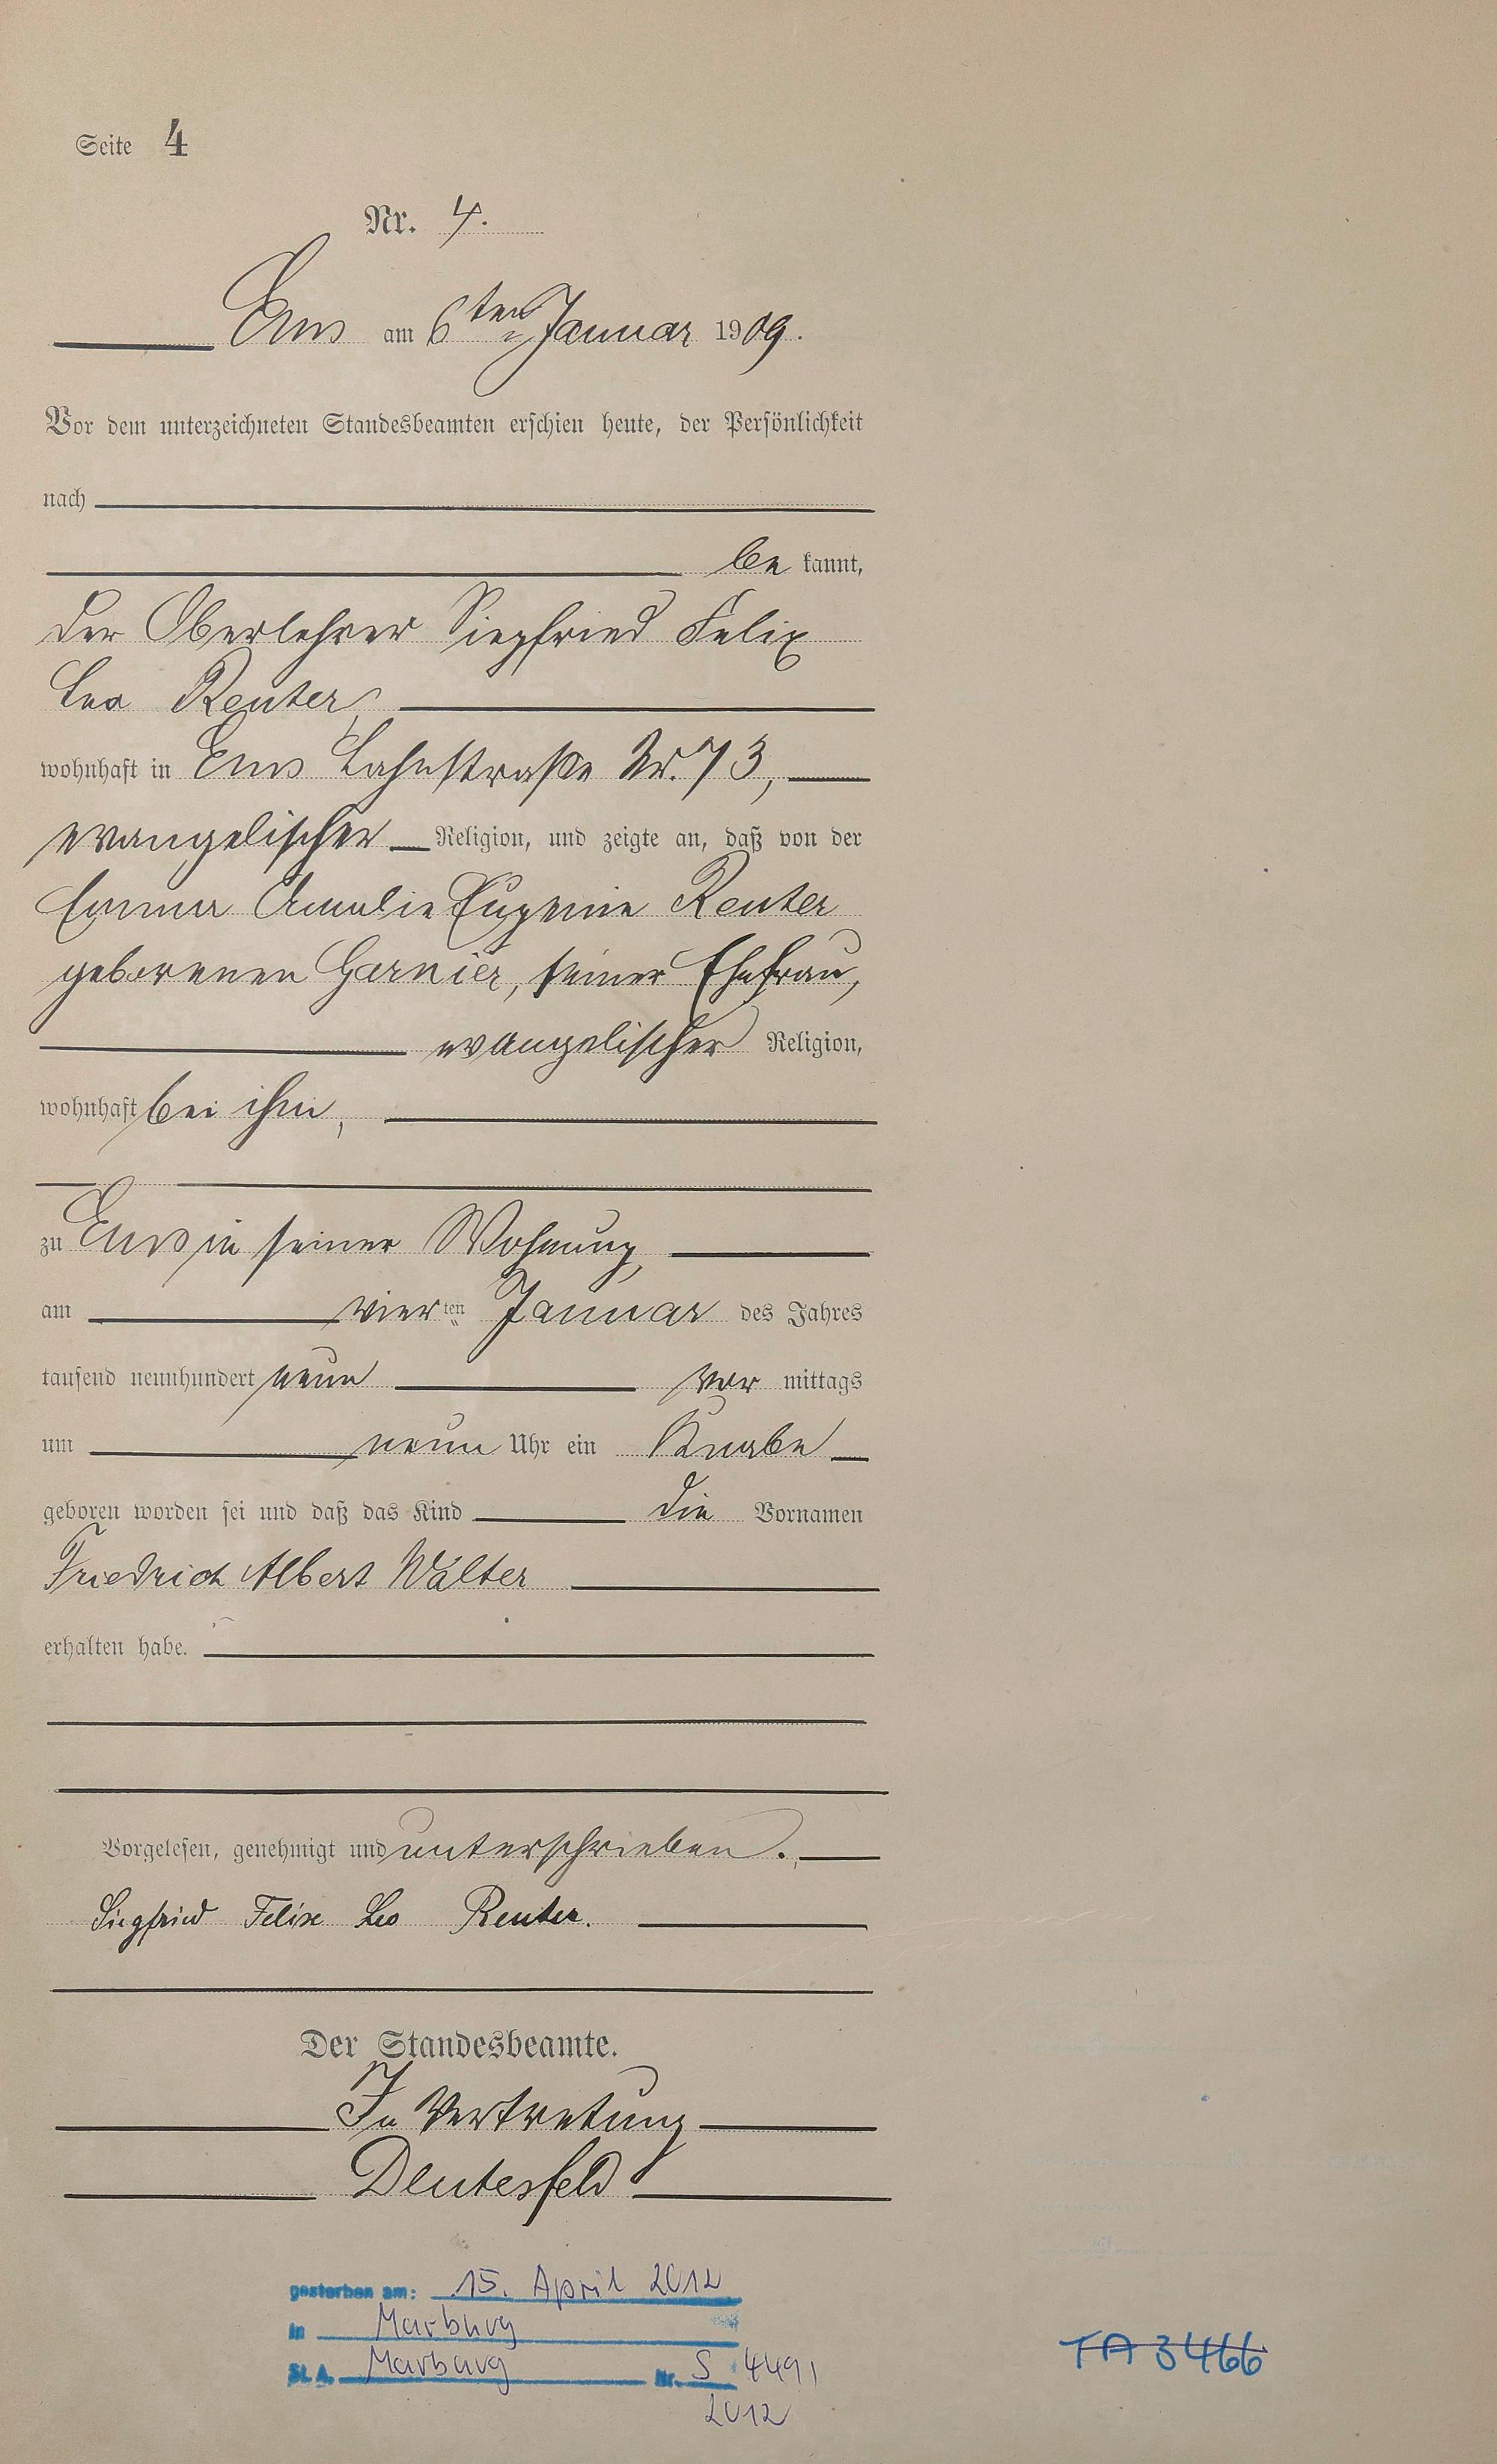 Seite 4
Nr. 4.
Ems am 6ten Januar 1909.
Vor dem unterzeichneten Standesbeamten erschien heute, der Persönlichkeit
nach
be kannt,
der Oberlehrer Siegfried Felix
Leo Reuter,
wohnhaft in Ems Lahnstraße Nr. 73,
evangelischer Religion, und zeigte an, daß von der
Emma Amalie Eugenie Reuter
geborenen Garnier, seiner Ehefrau,
evangelischer Religion,
wohnhaft bei ihm,
zu Ems in seiner Wohnung,
am vier ten Januar des Jahres
tausend neunhundert neun vor mittags
um neun Uhr ein Knabe
geboren worden sei und daß das Kind die Vornamen
Friedrich Albert Walter
erhalten habe.
Vorgelesen, genehmigt und unterschrieben.
Siegfried Felix Leo Reuter.
Der Standesbeamte.
In Vertretung
Deutesfeld
gestorben am: 15. April 2012
in Marburg
St. A. Marburg Nr. S 449/
2012
TA 3466